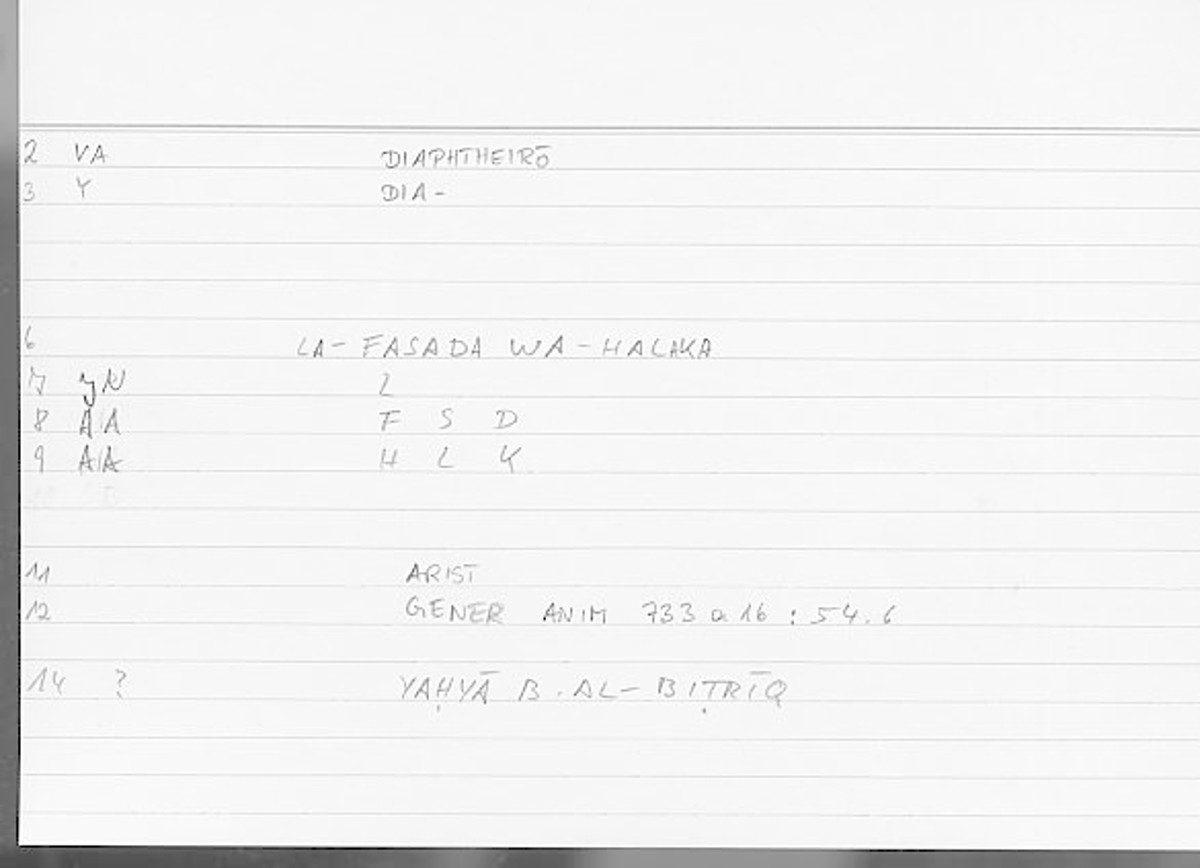 2 VA DIAPHTHEIRŌ
3 Y DIA-
6 LA- FASADA WA-HALAKA
7 YN L
8 AA F S D
9 AA H L K
11 ARIST
12 GENER ANIM 733 a 16 : 54.6
14 ? YAḤYĀ B. AL- BIṬRĪQ